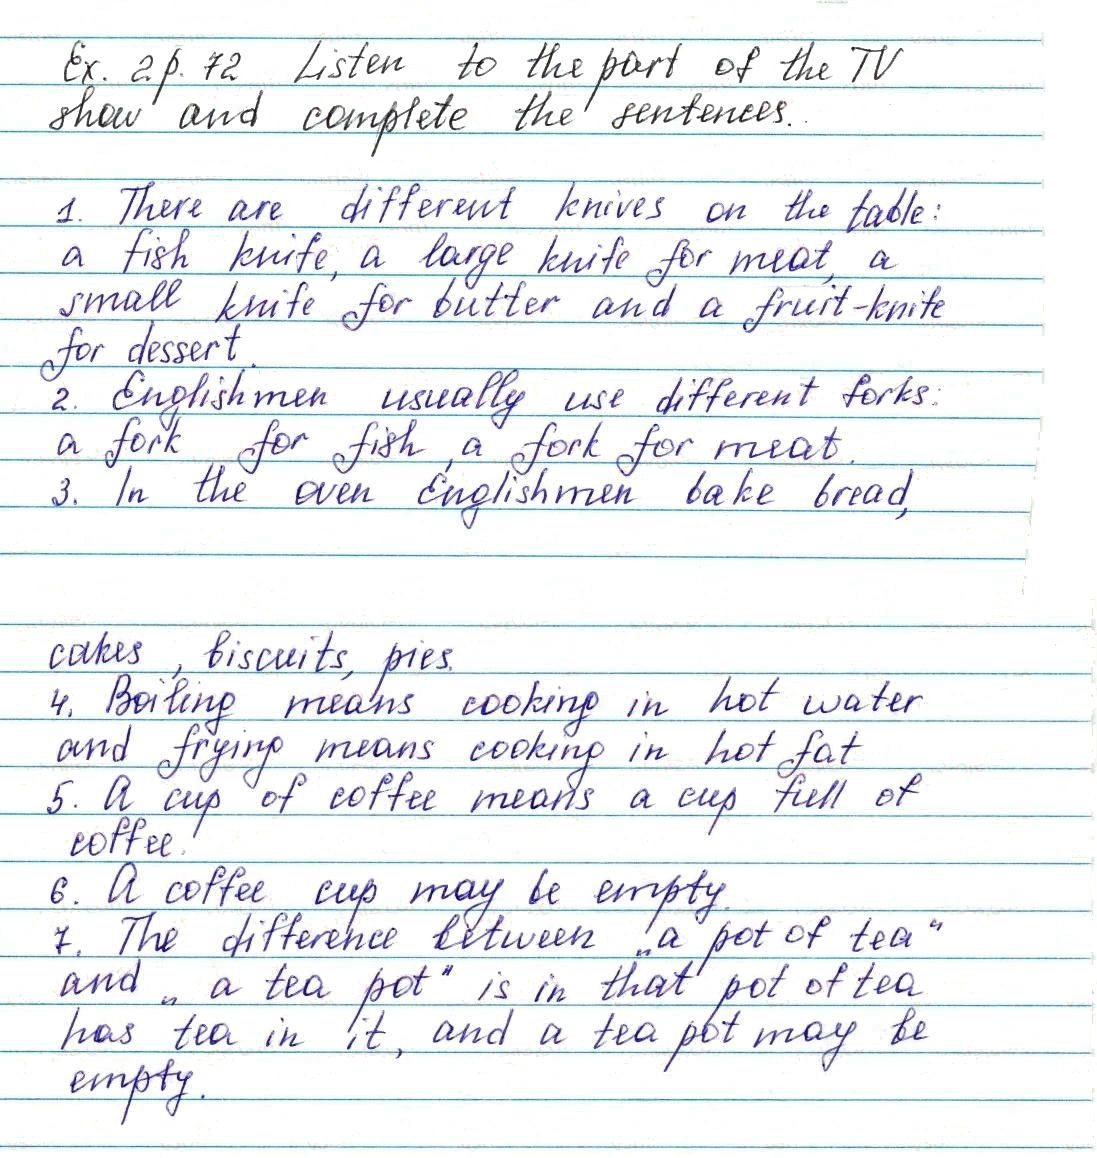 Ex. 2 p. 72 Listen to the part of the TV
show and complete the sentences.
1. There are different knives on the table:
a fish knife, a large knife for meat, a
small knife for butter and a fruit-knife
for dessert.
2. Englishmen usually use different forks:
a fork for fish, a fork for meat.
3. In the oven Englishmen bake bread,
cakes, biscuits, pies.
4. Boiling means cooking in hot water
and frying means cooking in hot fat
5. A cup of coffee means a cup full of
coffee.
6. A coffee cup may be empty.
7. The difference between „a pot of tea“
and „a tea pot“ is in that pot of tea
has tea in it, and a tea pot may be
empty.